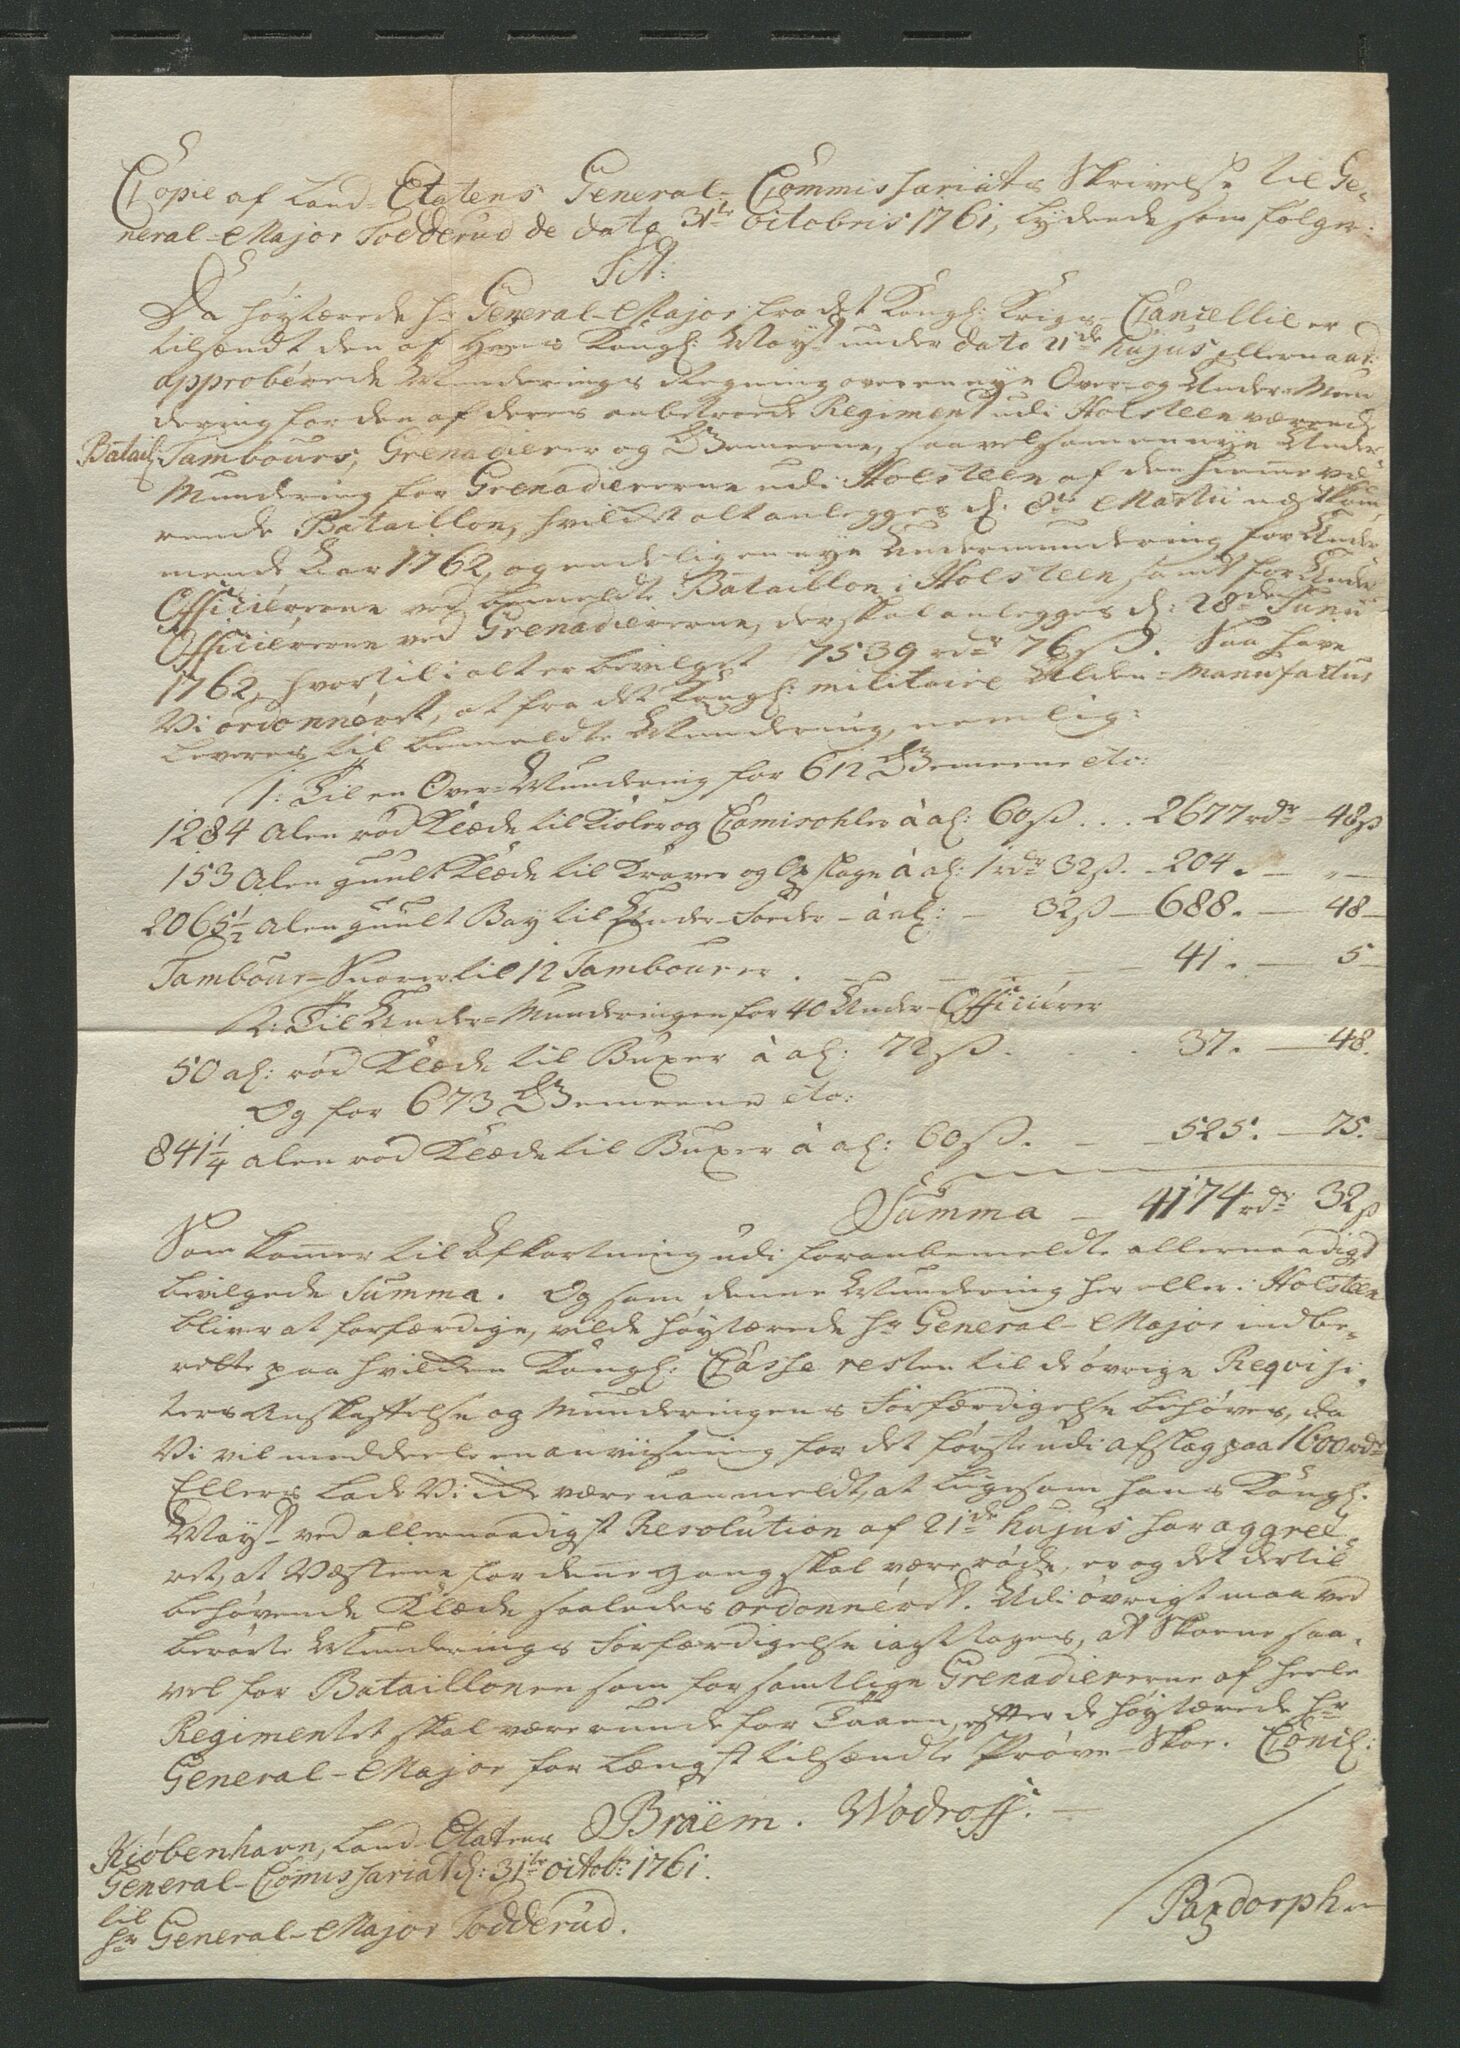 Copie af Land-Etatens General-Commissariats Skrivelse til Ge-
neral-Major Todderud de dato 31te octobris 1761, lydende som følger:
Tit:
Da høystærede Hr General-Major fra det Kongl: Krigs-Cancellie er
tilsendt den af Hans Kongl: Mayst under dato 21de hujus allernaad:
approberede Munderings Regning over en nye Over- og Under-Mun
dering for den af deres anbetroede Regiment udi Holsteen værende
Batail: Tambours, Grenadierer og Gemeene, saavelsom en nye Under
Mundering for Grenadiererne udi Holsteen af den hiemme væ-
rende Bataillon, hvilket alt anlegges d: 8de Martii næstkom-
mende Aar 1762, og endelig en nye Undermundering for Under
Officiererne ved bemeldte Bataillon i Holsteen, samt for Under
Officiererne ved Grenadiererne, der skal anlegges d: 28de Junii
1762, hvortil i alt er bevilget 7539 rdr 76 ß. Saa have
Vi ordonneret, at fra det Kongl: militaire Ulden-Manufactur
leveres til bemeldte Mundering, nemlig:
1: Til en Over-Mundering for 612 Gemeene etc:
1284 Alen rød Klæde til Kioler og Camisohler à al: 60 ß . . . 2677 rdr 48 ß
153 Alen guult Klæde til Kraver og Opslage à al: 1 rdr 32 ß. - 204. - " -
2065½ Alen guult Bay til Under-Foeder - à al: - 32 ß - 688. - 48 -
Tambour-Snorer til 12 Tambourer . - - - - 41. - 5 -
2: Til Under-Munderingen for 40 Under-Officierer
50 al: rød Klæde til Buxer à al: 72 ß . . . 37. - 48.
Og for 673 Gemeene etc:
841¼ Alen rød Klæde til Buxer à al: 60 ß. - - 525. - 75.
Summa - 4174 rdr 32 ß
Som kommer til Afkortning udi foranbemeldte allernaadigst
bevilgede Summa. Og som denne Mundering her eller i Holsteen
bliver at forfærdige, vilde høystærede Hr General-Major indbe-
rette paa hvilken Kongl: Casse resten til de øvrige Reqvisi-
ters Anskaffelse og Munderingens Forfærdigelse behøves, da
Vi vil meddeele en anviisning for det første udi afslag paa 1600 rdr
Ellers lade Vi De være uanmeldt, at ligesom Hans Kongl:
Mayst ved allernaadigst Resolution af 21de hujus har aggree-
ret, at Væstene for denne gang skal være røde, er og det dertil
behøvende Klæde saaledes ordonneret. Udi øvrigt maa ved
berørte Munderings Forfærdigelse iagttages, at Skoene saa-
vel for Bataillonen som for samtlige Grenadiererne af heele
Regimentet skal være runde for Taaen, efter de høystærede Hr
General-Major for længst tilsendte Prøve-Skoe. Concl:
Kiøbenhavn, Land-Etatens Bräem. Wodroff.
General-Commissariat d: 31te octobr: 1761.
til
Hr General-Major Todderud.
/ Paxdorph